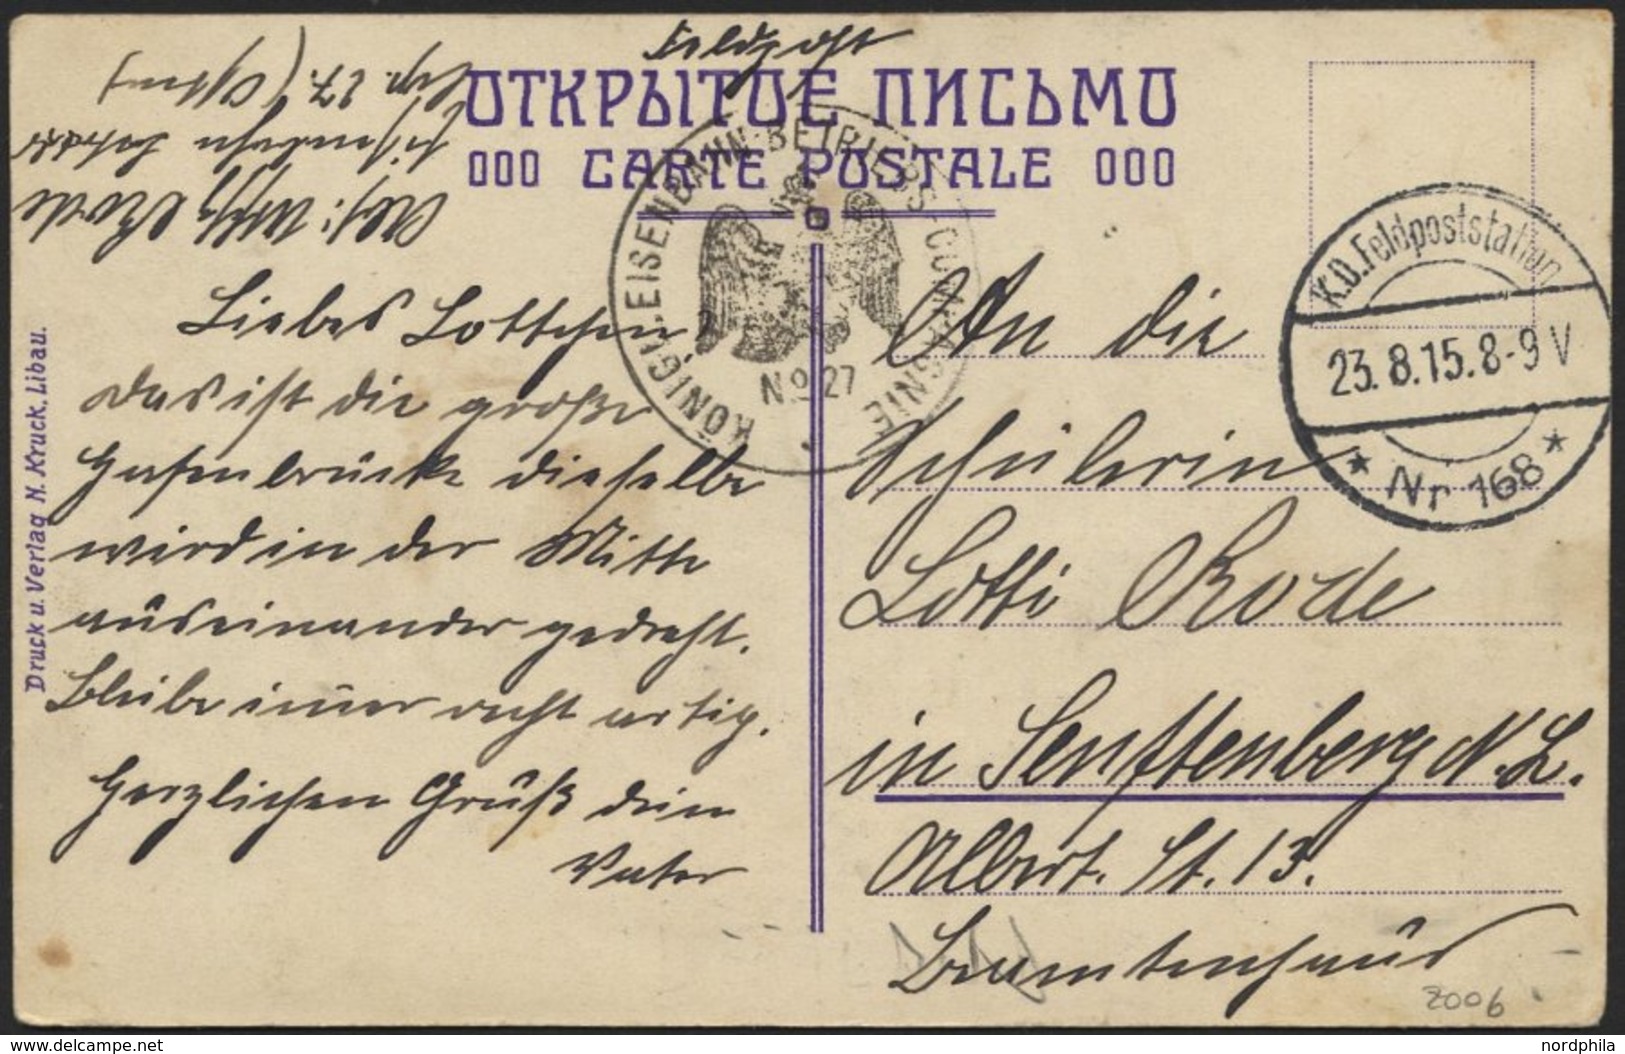 Feldpost
ОТКРЫТОЕ ПИСЬМО
000 CARTE POSTALE 000
Abs: Rode
Eisenbahn Betriebs
Cmp. 27. (Osten)
KÖNIGL. EISENBAHN-BETRIEBS-COMPAGNIE
No 27
K.D. Feldpoststation
23.8.15.8-9 V
* Nr 168 *
Liebes Lottchen!
das ist die große
Hafenbrücke dieselbe
wird in der Mitte
auseinander gedreht.
Bleibe im̅er recht artig.
Herzlichen Gruß dein
Vater
An die
Schülerin
Lotti Rode
in Senftenberg N.L.
Albert. St. 13.
Beamtenhaus
2006
Druck u. Verlag N. Kruck, Libau.
www.delcampe.net
nordphila